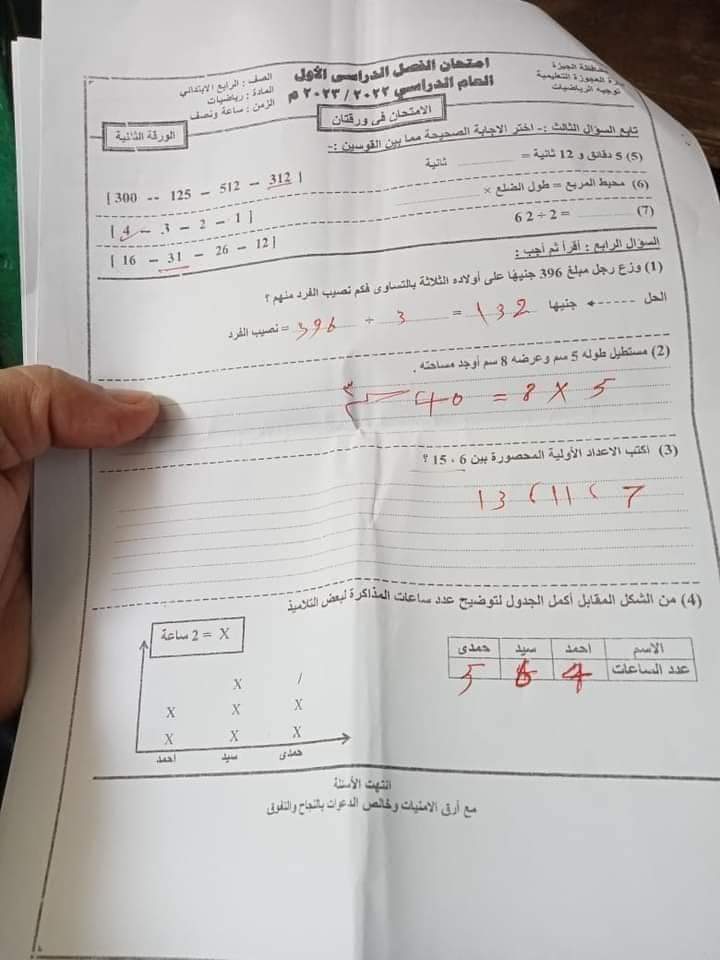 محافظة الجيزة
إدارة العجوزة التعليمية
توجيه الرياضيات
امتحان الفصل الدراسى الأول
العام الدراسي ٢٠٢٢ / ٢٠٢٣ م
الامتحان فى ورقتان
الصف : الرابع الابتدائي
المادة : رياضيات
الزمن : ساعة ونصف
الورقة الثانية
تابع السؤال الثالث :- اختر الاجابة الصحيحة مما بين القوسين :-
(5) 5 دقائق و 12 ثانية = ............ ثانية [ 300 -- 125 – 512 – 312 ]
(6) محيط المربع = طول الضلع × ............ [ 4 – 3 – 2 – 1 ]
(7) ............ = 2 ÷ 62 [ 16 – 31 – 26 – 12 ]
السؤال الرابع : أقرأ ثم أجب :
(1) وزع رجل مبلغ 396 جنيهًا على أولاده الثلاثة بالتساوى فكم نصيب الفرد منهم ؟
الحل ------← نصيب الفرد = 396 ÷ 3 = 132 جنيها
(2) مستطيل طوله 5 سم وعرضه 8 سم أوجد مساحته .
5 X 8 = 40 سم٢
(3) اكتب الاعداد الأولية المحصورة بين 6 ، 15 ؟
7 ، 11 ، 13
(4) من الشكل المقابل أكمل الجدول لتوضيح عدد ساعات المذاكرة لبعض التلاميذ
الاسم احمد سيد حمدى
عدد الساعات 4 6 5
X = 2 ساعة
X /
X X X
X X X
احمد سيد حمدى
انتهت الأسئلة
مع أرق الامنيات وخالص الدعوات بالنجاح والتفوق